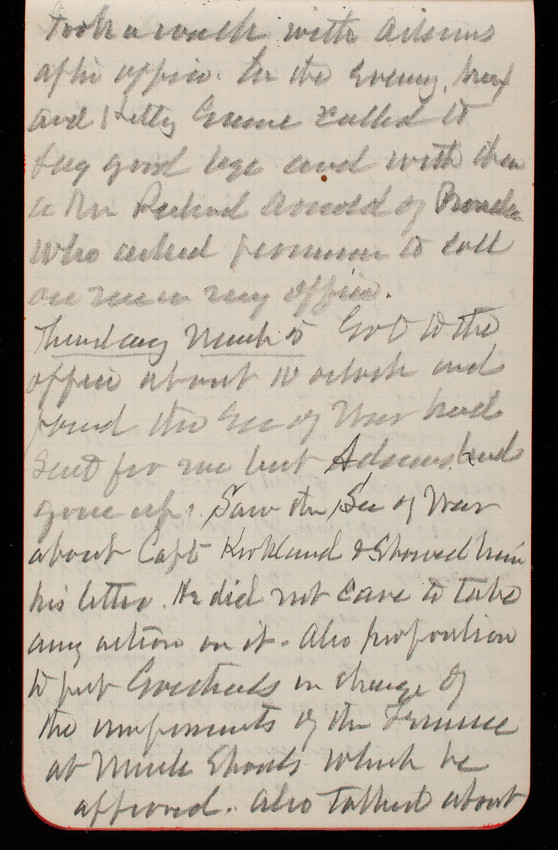 took a walk with Adams
after office. In the Evening, 
and Kitty Greene called to
say good bye and with them
a Mr Richard Arnold of
who asked permission to call
on me in my office.
Thursday March 5 Got to the
office about 10 oclock and
found the Sec of War had
sent for me but Adams had
gone up. Saw the Sec of War
about Capt Kirkland & Showed him
his letter. He did not care to take
any action on it. Also proposition
to put Goethals in charge of
the improvements of the Tennessee
at Muscle Shoals which he
approved. Also talked about